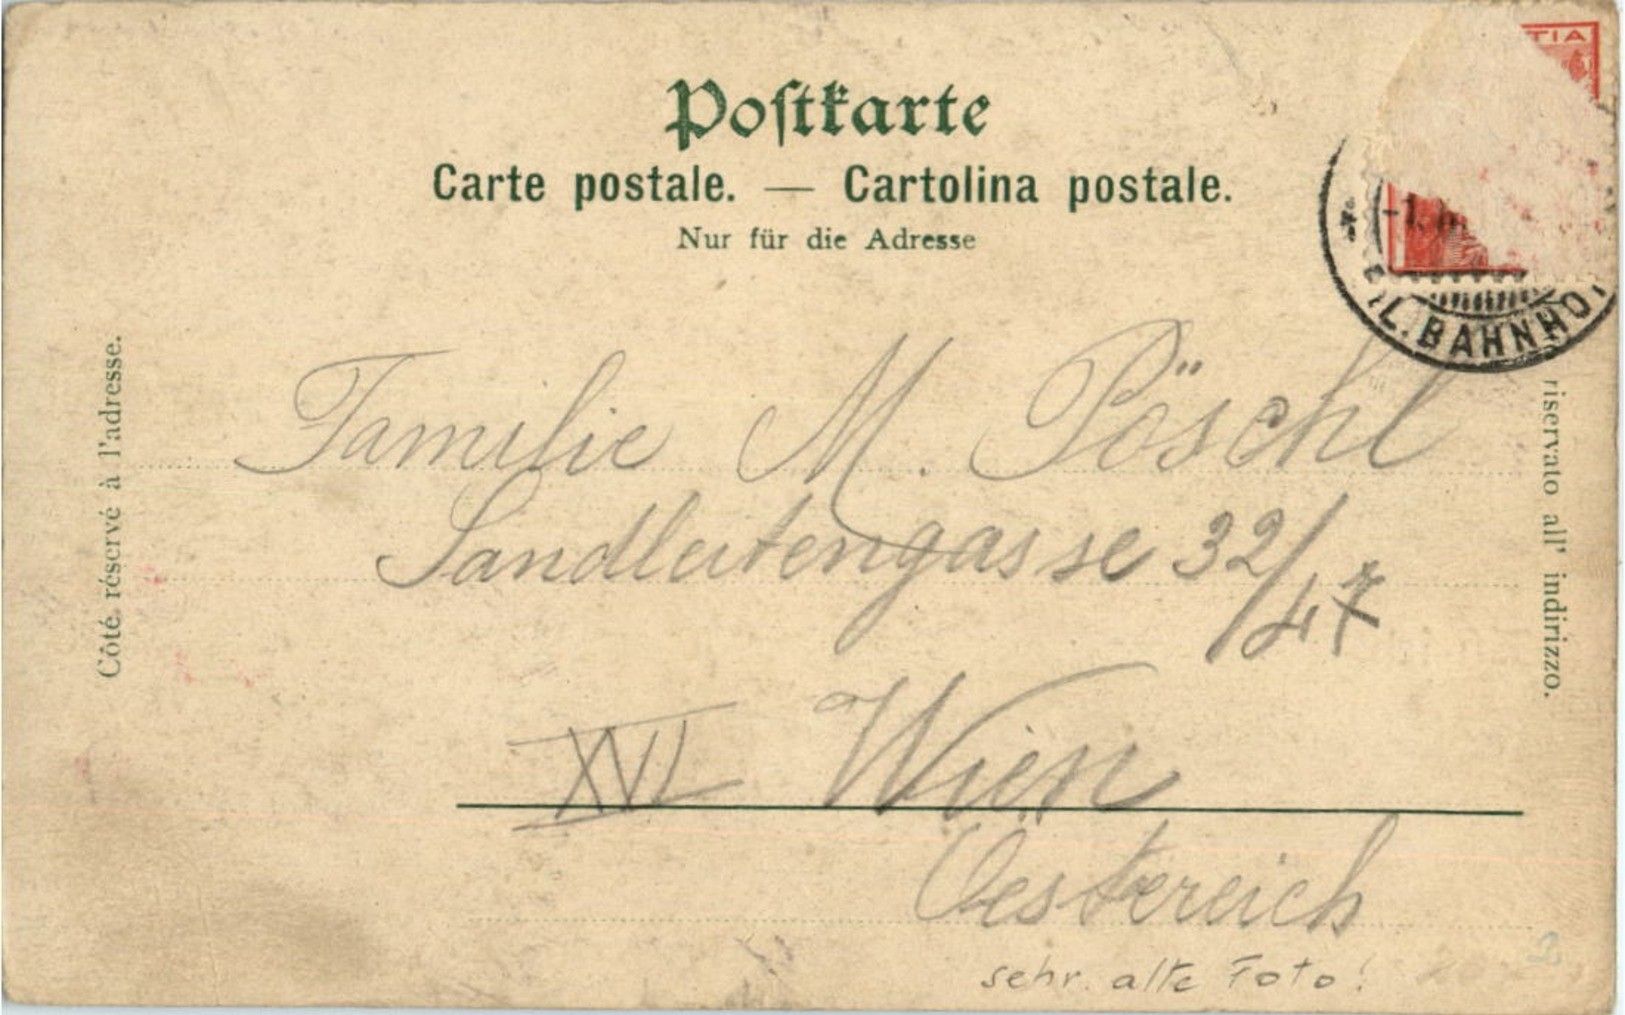 Postkarte
Carte postale. — Cartolina postale.
Nur für die Adresse
TIA
L. BAHNHO
Côté réservé à l'adresse.
riservato all' indirizzo.
Familie M. Pöschl
Sandleitengasse 32/
47
XVI Wien
Oestereich
sehr alte Foto!
2